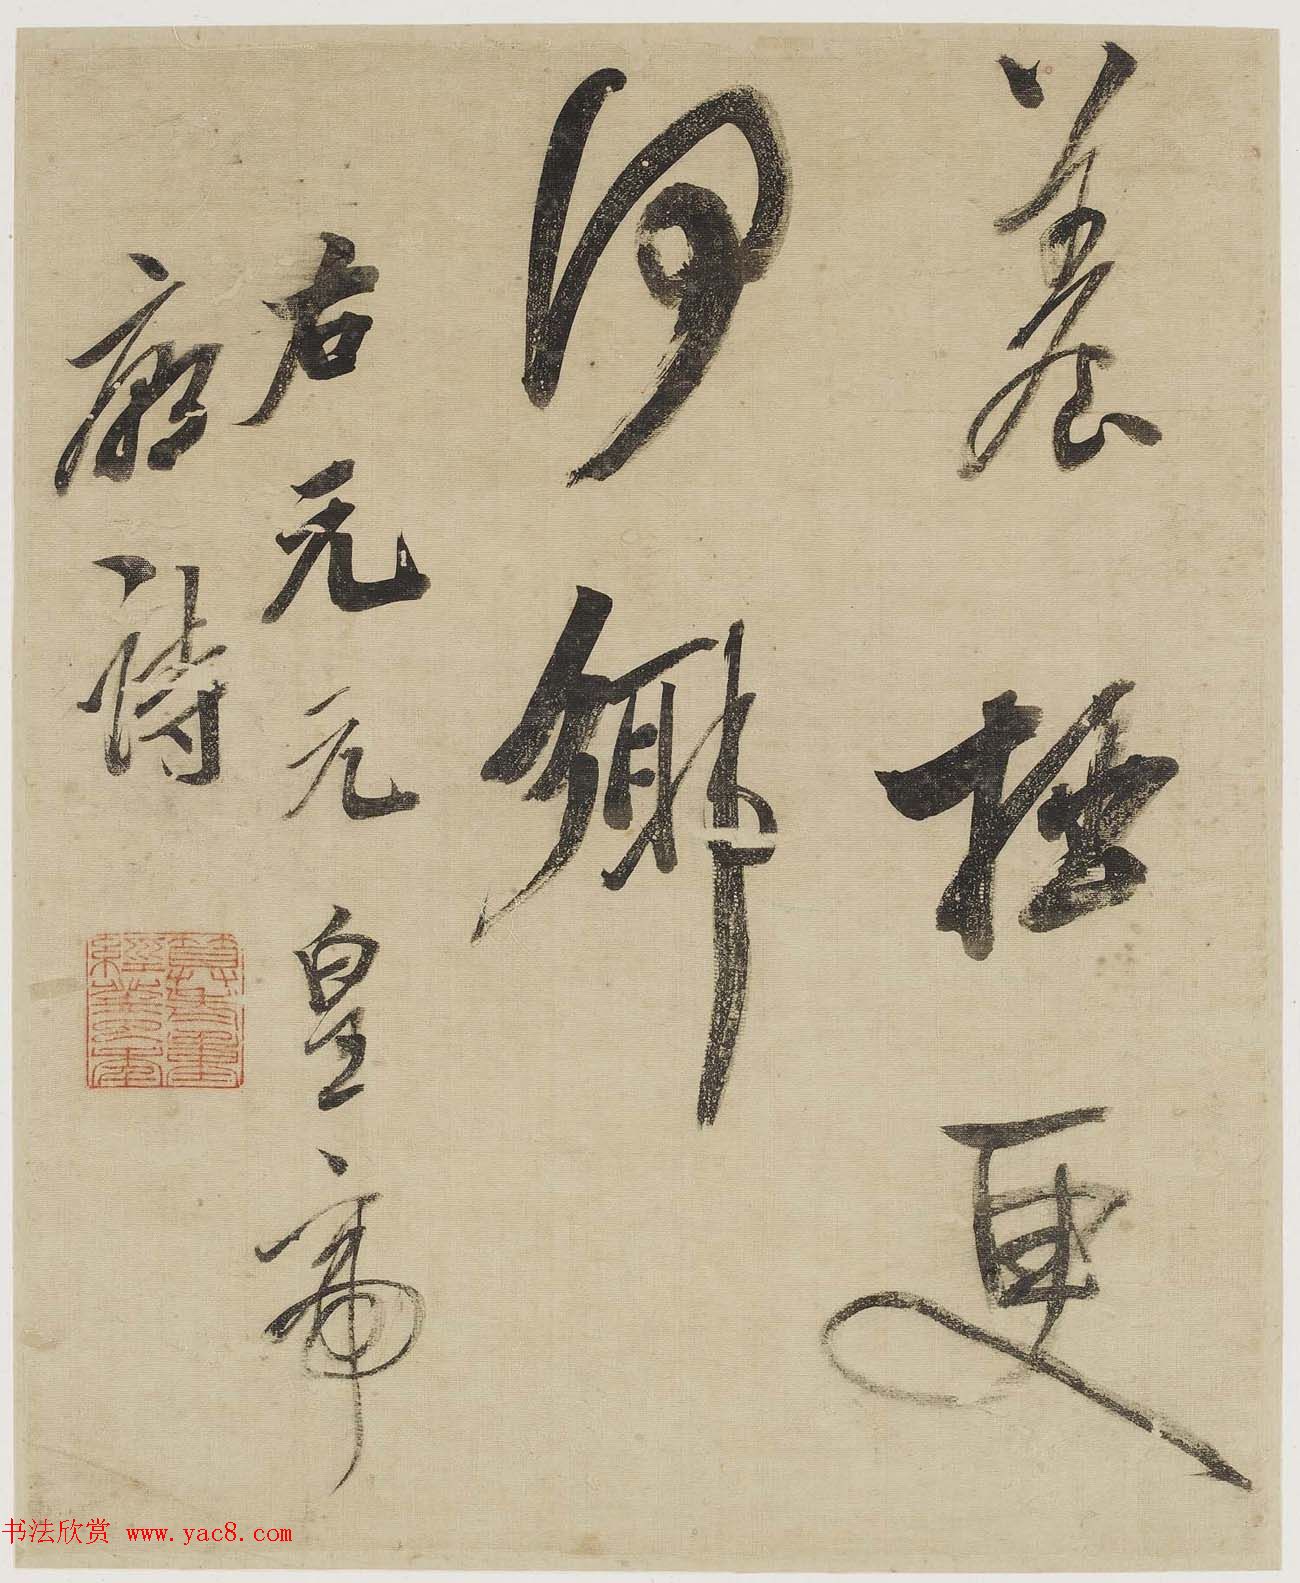 養拙更
何鄉
右元元皇帝
廟詩
书法欣赏 www.yac8.com